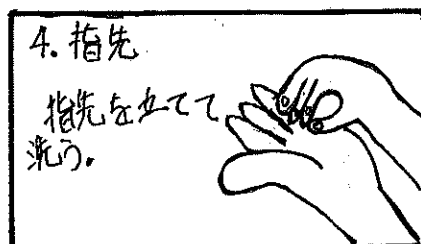 4. 指先
指先を立てて
洗う。